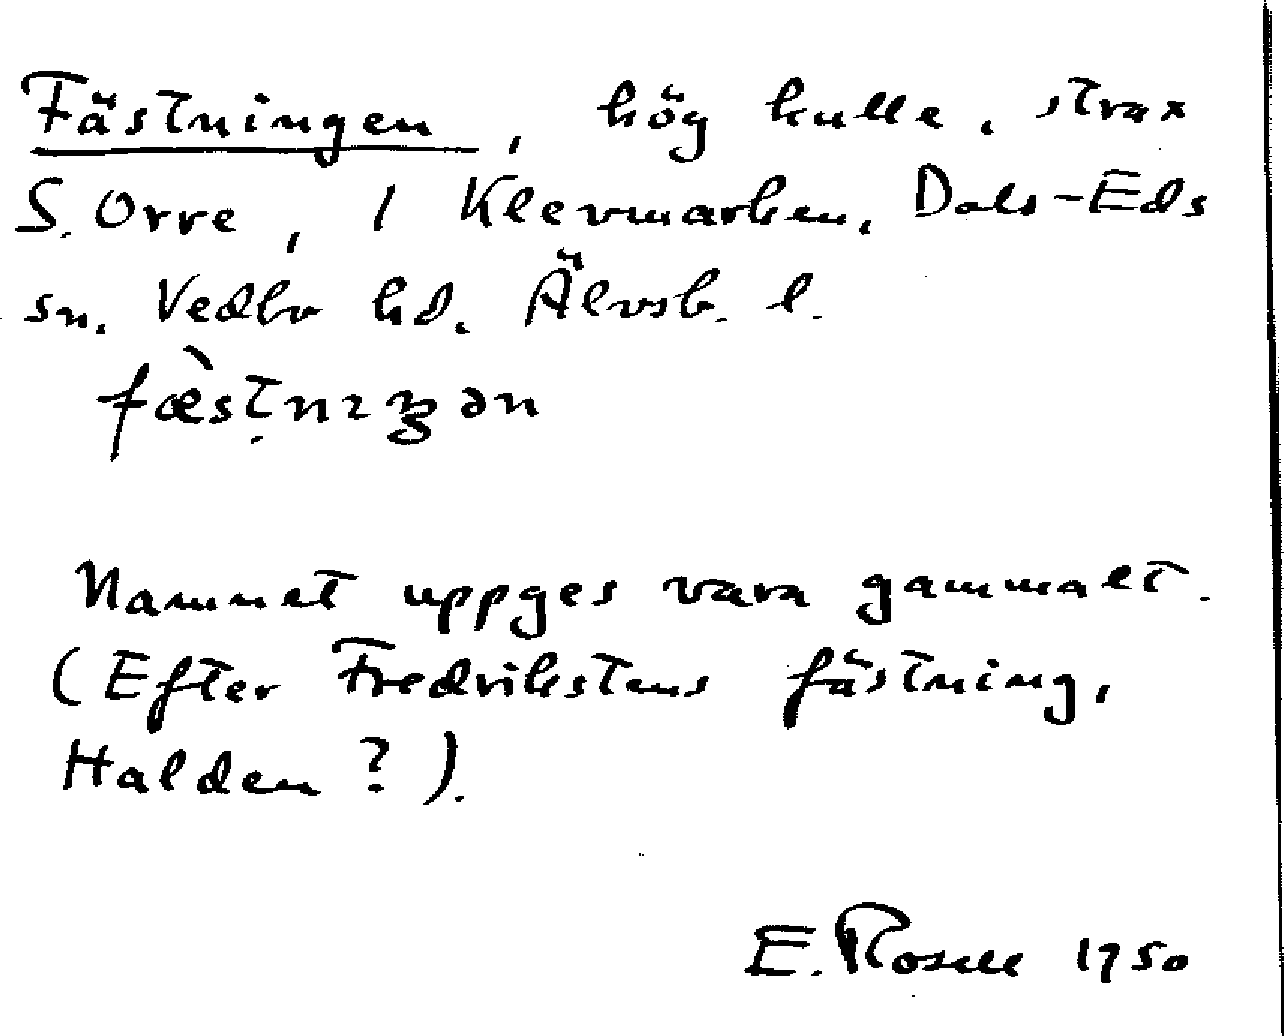 Fästningen, hög kulle, strax
S. Orre, 1 Klevmarken, Dals-Eds
sn. Vedbo hd. Älvsb. l.
fæ̀stṇıŋən
Namnet uppges vara gammalt.
(Efter Fredrikstens fästning,
Halden?).
E. Rosell 1950